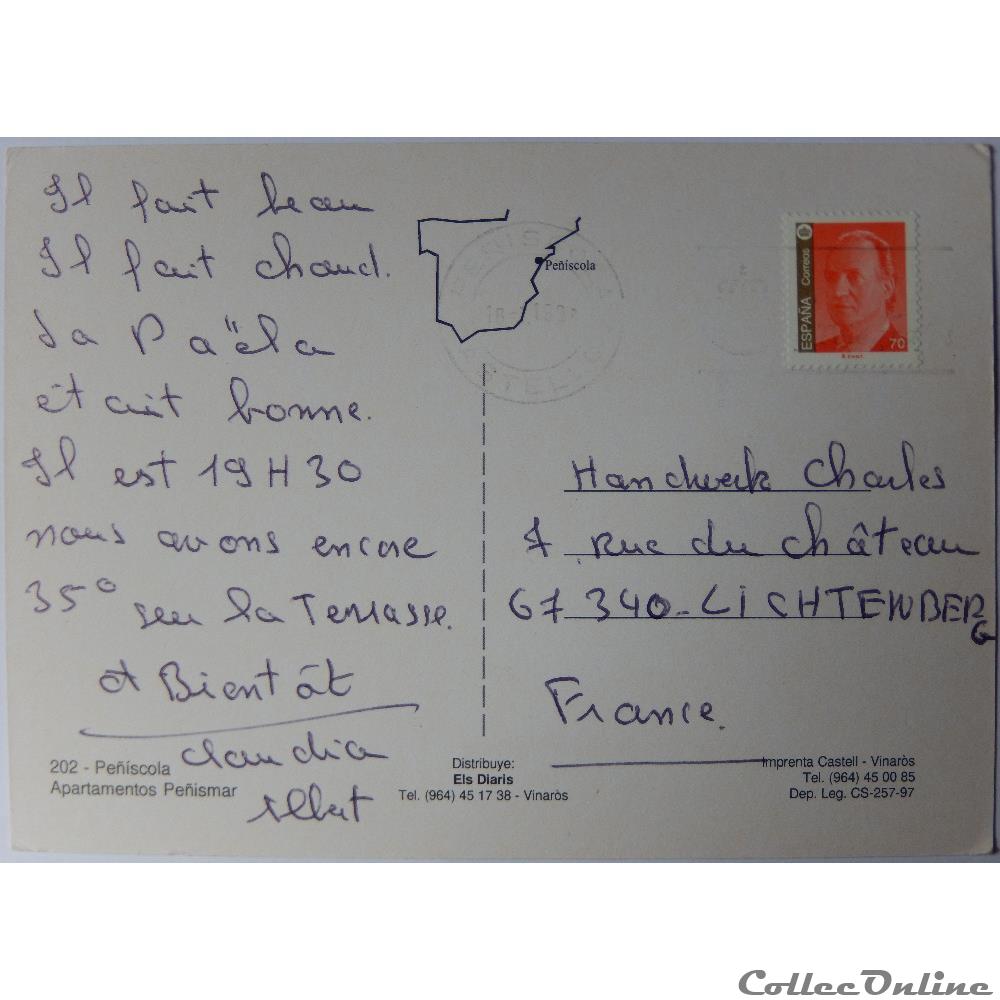 Il fait beau
Il fait chaud.
La Paëla
était bonne.
Il est 19H30
nous avons encore
35° sur la Terrasse.
A Bientôt
Claudia
Albert
202 - Peñíscola
Apartamentos Peñismar
Peñíscola
Distribuye:
Els Diaris
Tel. (964) 45 17 38 - Vinaròs
ESPAÑA Correos
70
Handwerk Charles
7 rue du château
67340-LICHTENBERG
France.
Imprenta Castell - Vinaròs
Tel. (964) 45 00 85
Dep. Leg. CS-257-97
CollecOnline